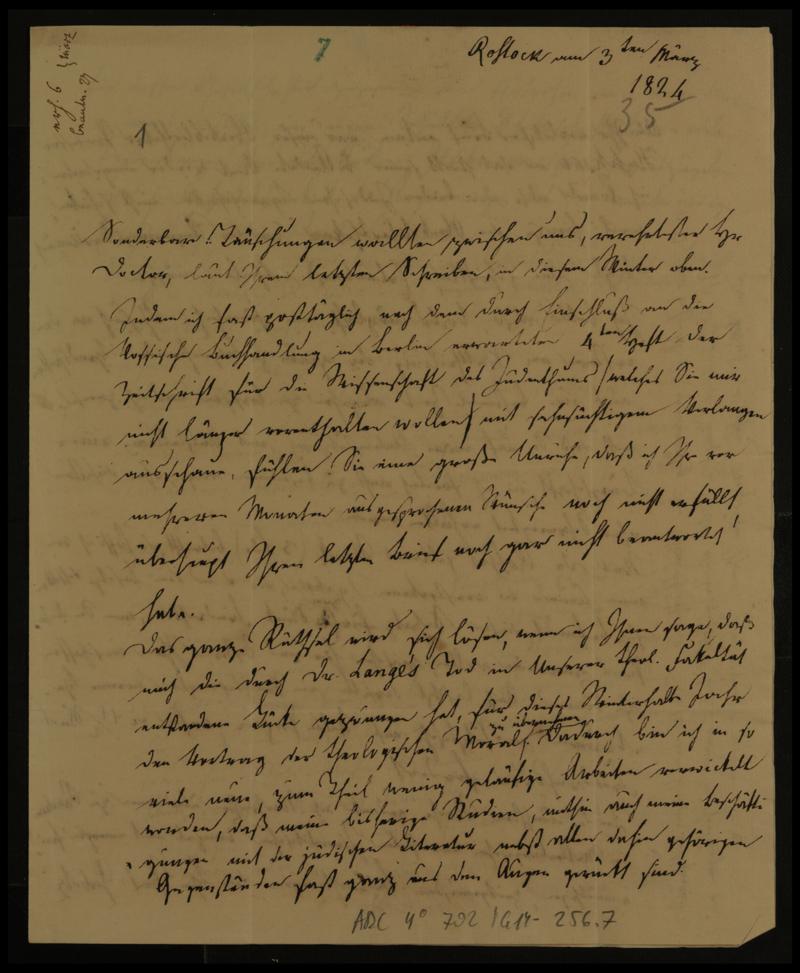 7
Rostock am 3ten März
1824
35
1
Sonderbare Täuschungen wollten zwischen uns, verehrtester Hr
Doctor, laut Ihrem letzten Schreiben, in diesem Winter oben.
Indem ich fast posttäglich nach dem durch Einschluß an die
Vossische Buchhandlung in Berlin erwarteten 4ten Heft der
Zeitschrift für die Wissenschaft des Judenthums (welches Sie mir
nicht länger vorenthalten wollen) mit sehnsüchtigem Verlangen
ausschaue, fühlen Sie eine große Unruhe, daß ich Ihre vor
mehreren Monaten ausgesprochenen Wünsche noch nicht erfüllt
überhaupt Ihren letzten Brief noch gar nicht beantwortet
habe.
Das ganze Räthsel wird sich lösen, wenn ich Ihnen sage, daß
mich die durch Dr. Lange's Tod in unserer theol. Fakultät
entstandene Lücke gezwungen hat, für dieses Winterhalbe Jahr
den Vortrag der theologischen Moral zu übernehmen. Dadurch bin ich in so
viele neue, zum Theil wenig geläufige Arbeiten verwickelt
worden, daß meine bisherige Studien, mithin auch meine Beschäfti-
gungen mit der jüdischen Literatur nebst allen dahin gehörigen
Gegenständen fast ganz aus den Augen gerückt sind.
ARC 4° 792/G14-256.7